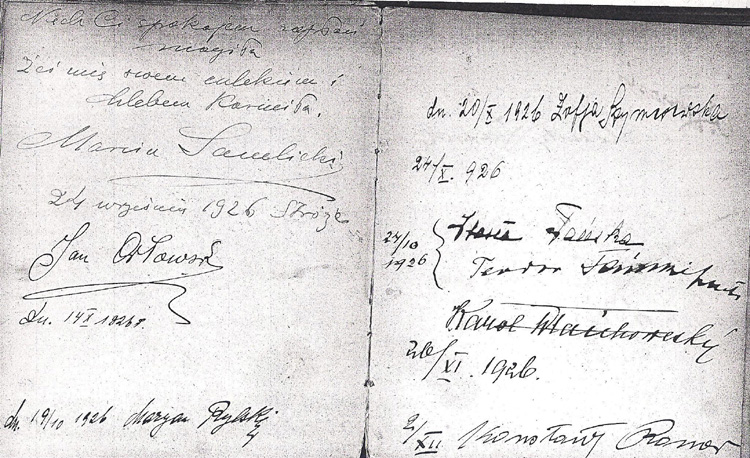 Niech Ci spokojem zapłaci
mogiła
Żeś mię swem mlekiem i
chlebem karmiła.
Marcin Samlicki
24 września 1926 Stróże
Jan Orłowski
dn. 14 X 1926 r.
dn. 19/10 1926 Maryan Rylski
dn. 20/X 1926 Zofja
24/X. 926
24/10
1926
Tańska
Teodor
Karol
26/XI. 1926.
2/XII Konstanty